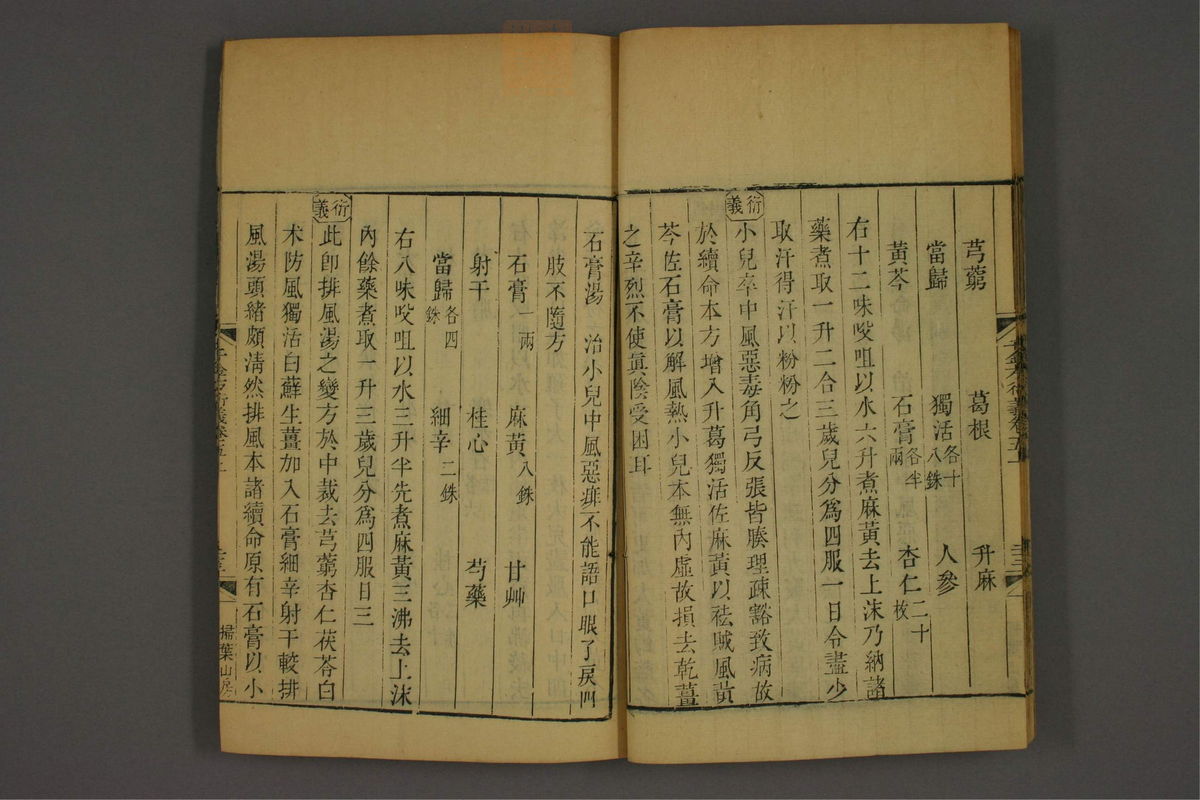 芎藭　葛根　升麻
當歸　獨活各十八銖　人參
黃芩　石膏各半兩　杏仁二十枚
右十二味㕮咀以水六升煮麻黃去上沫乃納諸
藥煮取一升二合三歲兒分爲四服一日令盡少
取汗得汗以粉粉之
衍義
小兒卒中風惡毒角弓反張皆腠理疎豁致病故
於續命本方增入升葛獨活佐麻黃以祛賊風黃
芩佐石膏以解風熱小兒本無內虛故損去乾薑
之辛烈不使眞陰受困耳
石膏湯　治小兒中風惡痱不能語口眼了戾四
肢不隨方
石膏一兩　麻黃八銖　甘艸
射干　桂心　芍藥
當歸各四銖　細辛二銖
右八味㕮咀以水三升半先煮麻黃三沸去上沫
內餘藥煮取一升三歲兒分爲四服日三
衍義
此卽排風湯之變方於中裁去芎藭杏仁茯苓白
朮防風獨活白蘚生薑加入石膏細辛射干較排
風湯頭緒頗淸然排風本諸續命原有石膏以小
千金方衍義卷五上
掃葉山房